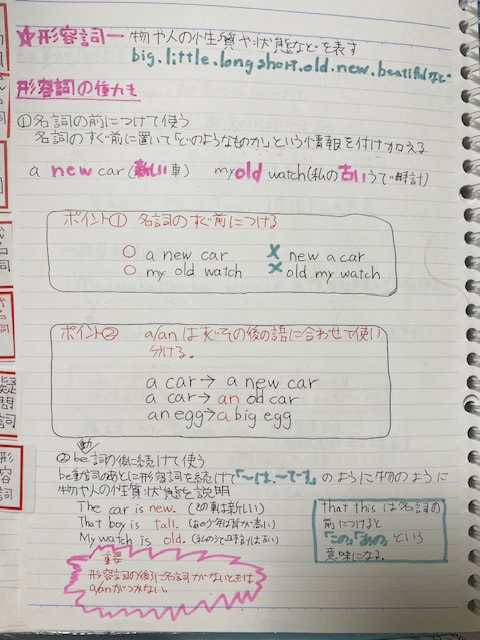 ☆形容詞ー物や人の性質や状態などを表す
big.little.long short.old.new.beatiful など
形容詞の働き
①名詞の前につけて使う
名詞のすぐ前に置いて「どのようなものか」という情報を付け加える
a new car (新しい車) my old watch (私の古いうで時計)
ポイント① 名詞のすぐ前につける
○ a new car × new a car
○ my old watch × old my watch
ポイント② a/an はすぐその後の語に合わせて使い
分ける。
a car → a new car
a car → an od car
an egg → a big egg
動
②be詞の後に続けて使う
be動詞のあとに形容詞を続けて「〜は、〜です」のように物のように
物や人の性質状態を説明
The car is new. (その車は新しい)
That boy is tall. (あの少年は背が高い)
My watch is old. (私のうで時計は古い)
that this は名詞の
前につけると
「この」「あの」という
意味になる。
重要
形容詞の後ろに名詞がないときは
a/anがつかない。
形容詞